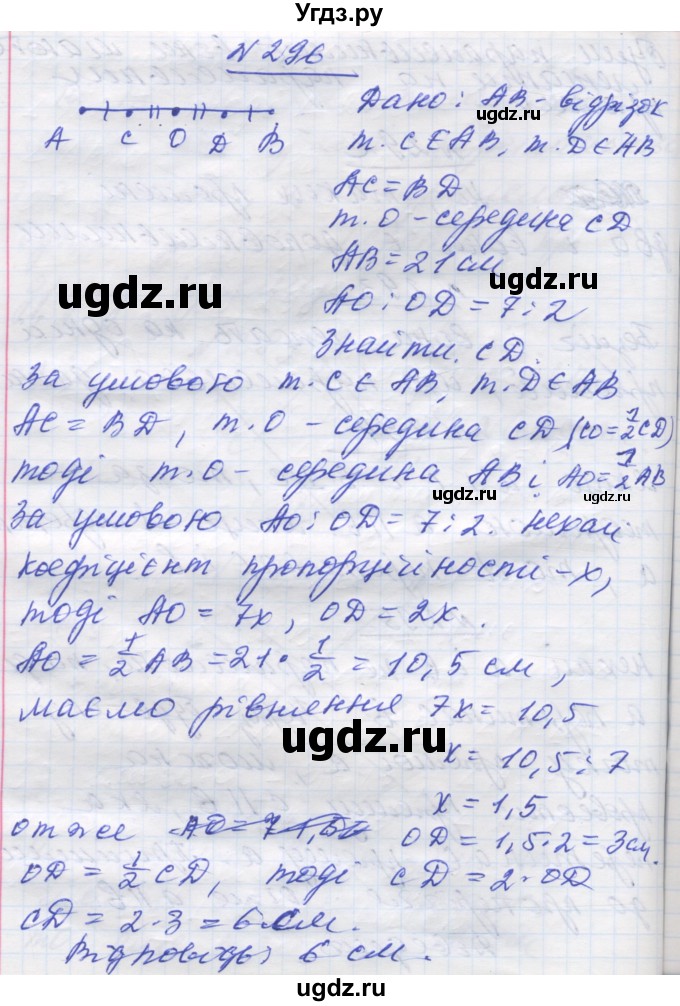 Угдз.ру
N 296
Дано: AB - відрізок
A C O D B
т. C ∈ AB, т. D ∈ AB
AC = BD
т. O - середина CD
AB = 21 см
AO : OD = 7 : 2
Знайти. CD.
За умовою т. C ∈ AB, т. D ∈ AB
AC = BD, т. O - середина CD (CO = 1/2 CD)
тоді т. O - середина AB і AO = 1/2 AB
За умовою AO : OD = 7 : 2. Нехай
коефіцієнт пропорційності - x,
тоді AO = 7x, OD = 2x.
AO = 1/2 AB = 21 · 1/2 = 10,5 см,
маємо рівняння 7x = 10,5
x = 10,5 : 7
x = 1,5
отже OD = 1,5 · 2 = 3 см.
OD = 1/2 CD, тоді CD = 2 · OD
CD = 2 · 3 = 6 см.
Відповідь: 6 см.
ugdz.ru
ugdz.ru
ugdz.ru
ugdz.ru
ugdz.ru
ugdz.ru
ugdz.ru